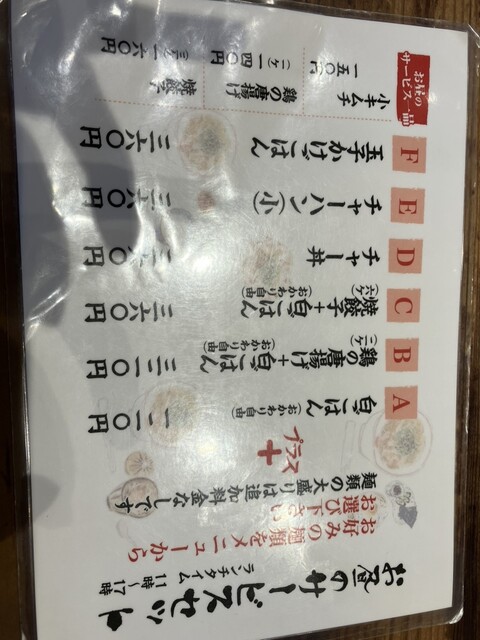 お昼のサービスセット
ランチタイム 11時〜17時
お好みの麺類をメニューから
お選び下さい
麺類の大盛りは追加料金なしです
プラス
+
A
白ごはん(おかわり自由)
B
鶏の唐揚げ(二ヶ)+白ごはん(おかわり自由)
C
焼餃子(六ヶ)+白ごはん(おかわり自由)
三六〇円
D
チャー丼
三六〇円
E
チャーハン(小)
三六〇円
F
玉子かけごはん
三六〇円
お昼の
サービス一品
小キムチ
一五〇円
鶏の唐揚げ
(二ヶ)一四〇円
焼餃子
(三ヶ)一六〇円